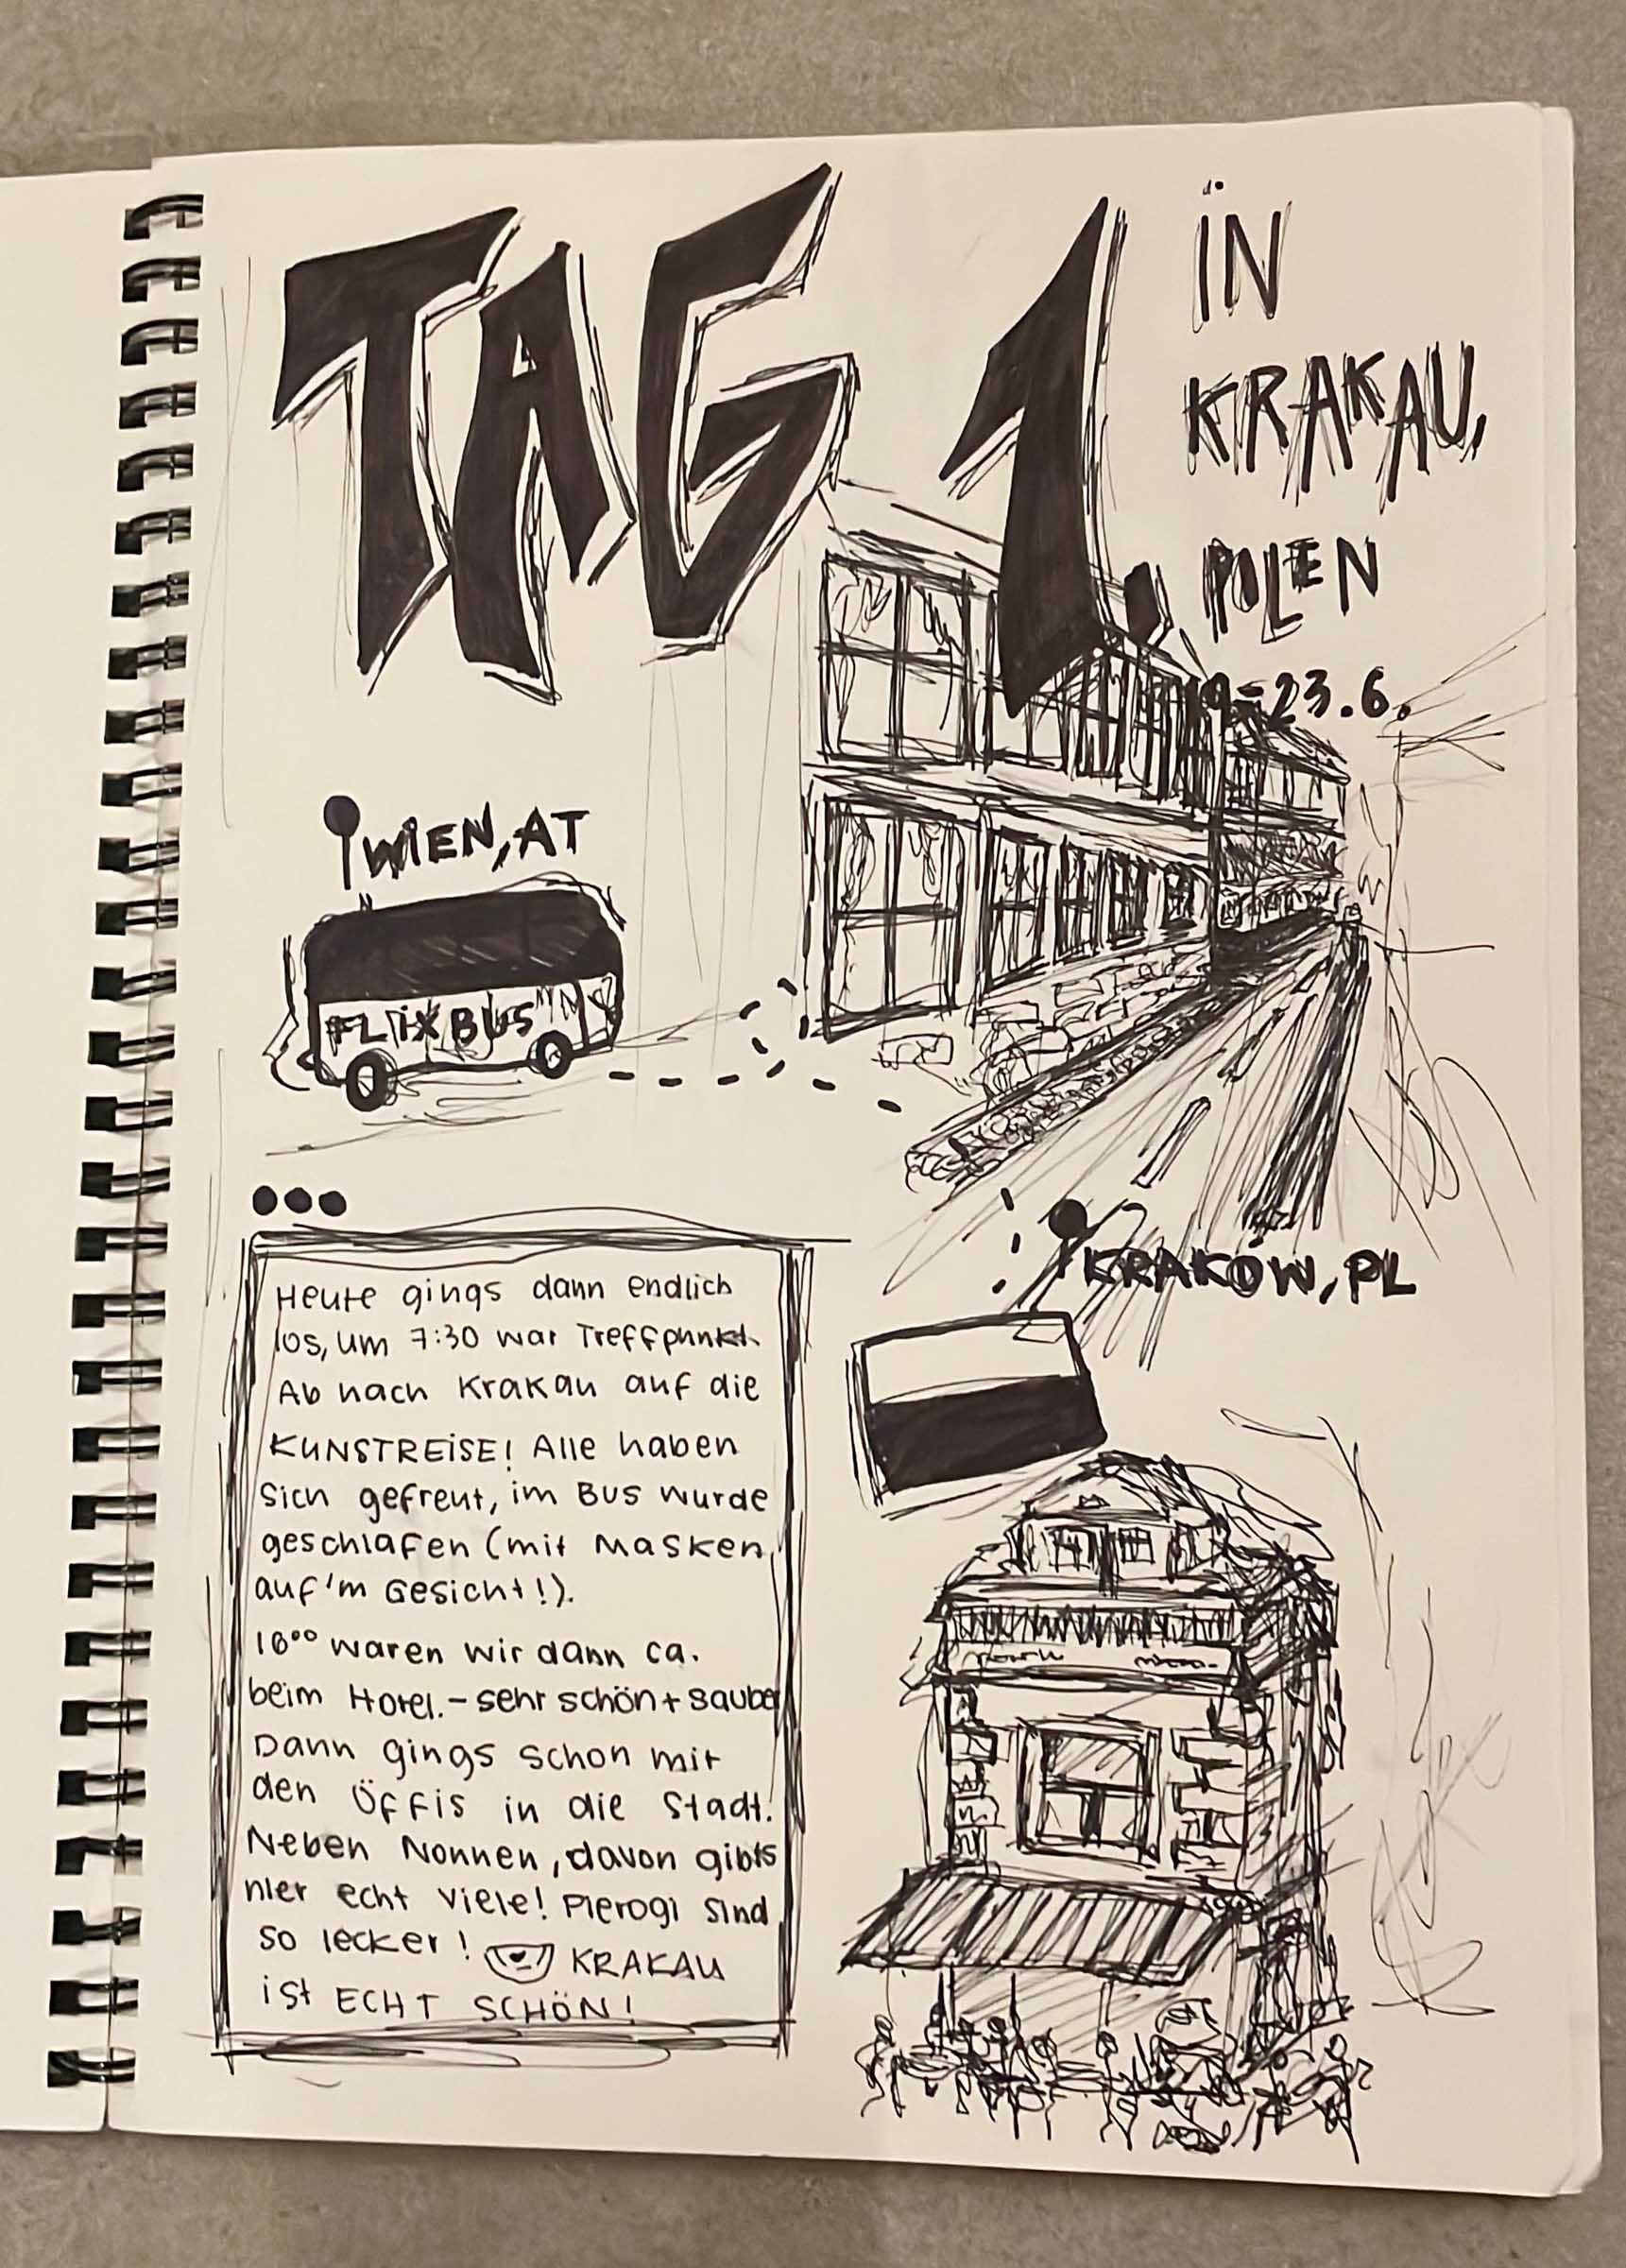 TAG 1.
IN
KRAKAU,
POLEN
19-23.6.
WIEN, AT
FLIXBUS
KRAKÓW, PL
Heute gings dann endlich
los, um 7:30 war Treffpunkt.
Ab nach Krakau auf die
KUNSTREISE! Alle haben
sich gefreut, im Bus wurde
geschlafen (mit Masken
auf'm Gesicht!).
16⁰⁰ waren wir dann ca.
beim Hotel. - sehr schön + sauber
Dann gings schon mit
den Öffis in die Stadt.
Neben Nonnen, davon gibts
hier echt viele! Pierogi sind
so lecker! KRAKAU
ist ECHT SCHÖN!